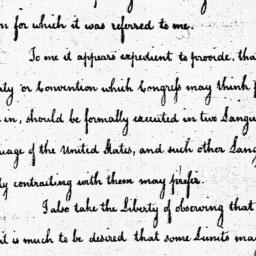 n for which it was referred to me.
To me it appears expedient to provide, tha
ty or Convention which Congress may think f
in, should be formally executed in two Langu
uage of the United States, and such other Lang
ly contracting with them may prefer.
I also take the Liberty of observing that
it is much to be desired that some Limits ma